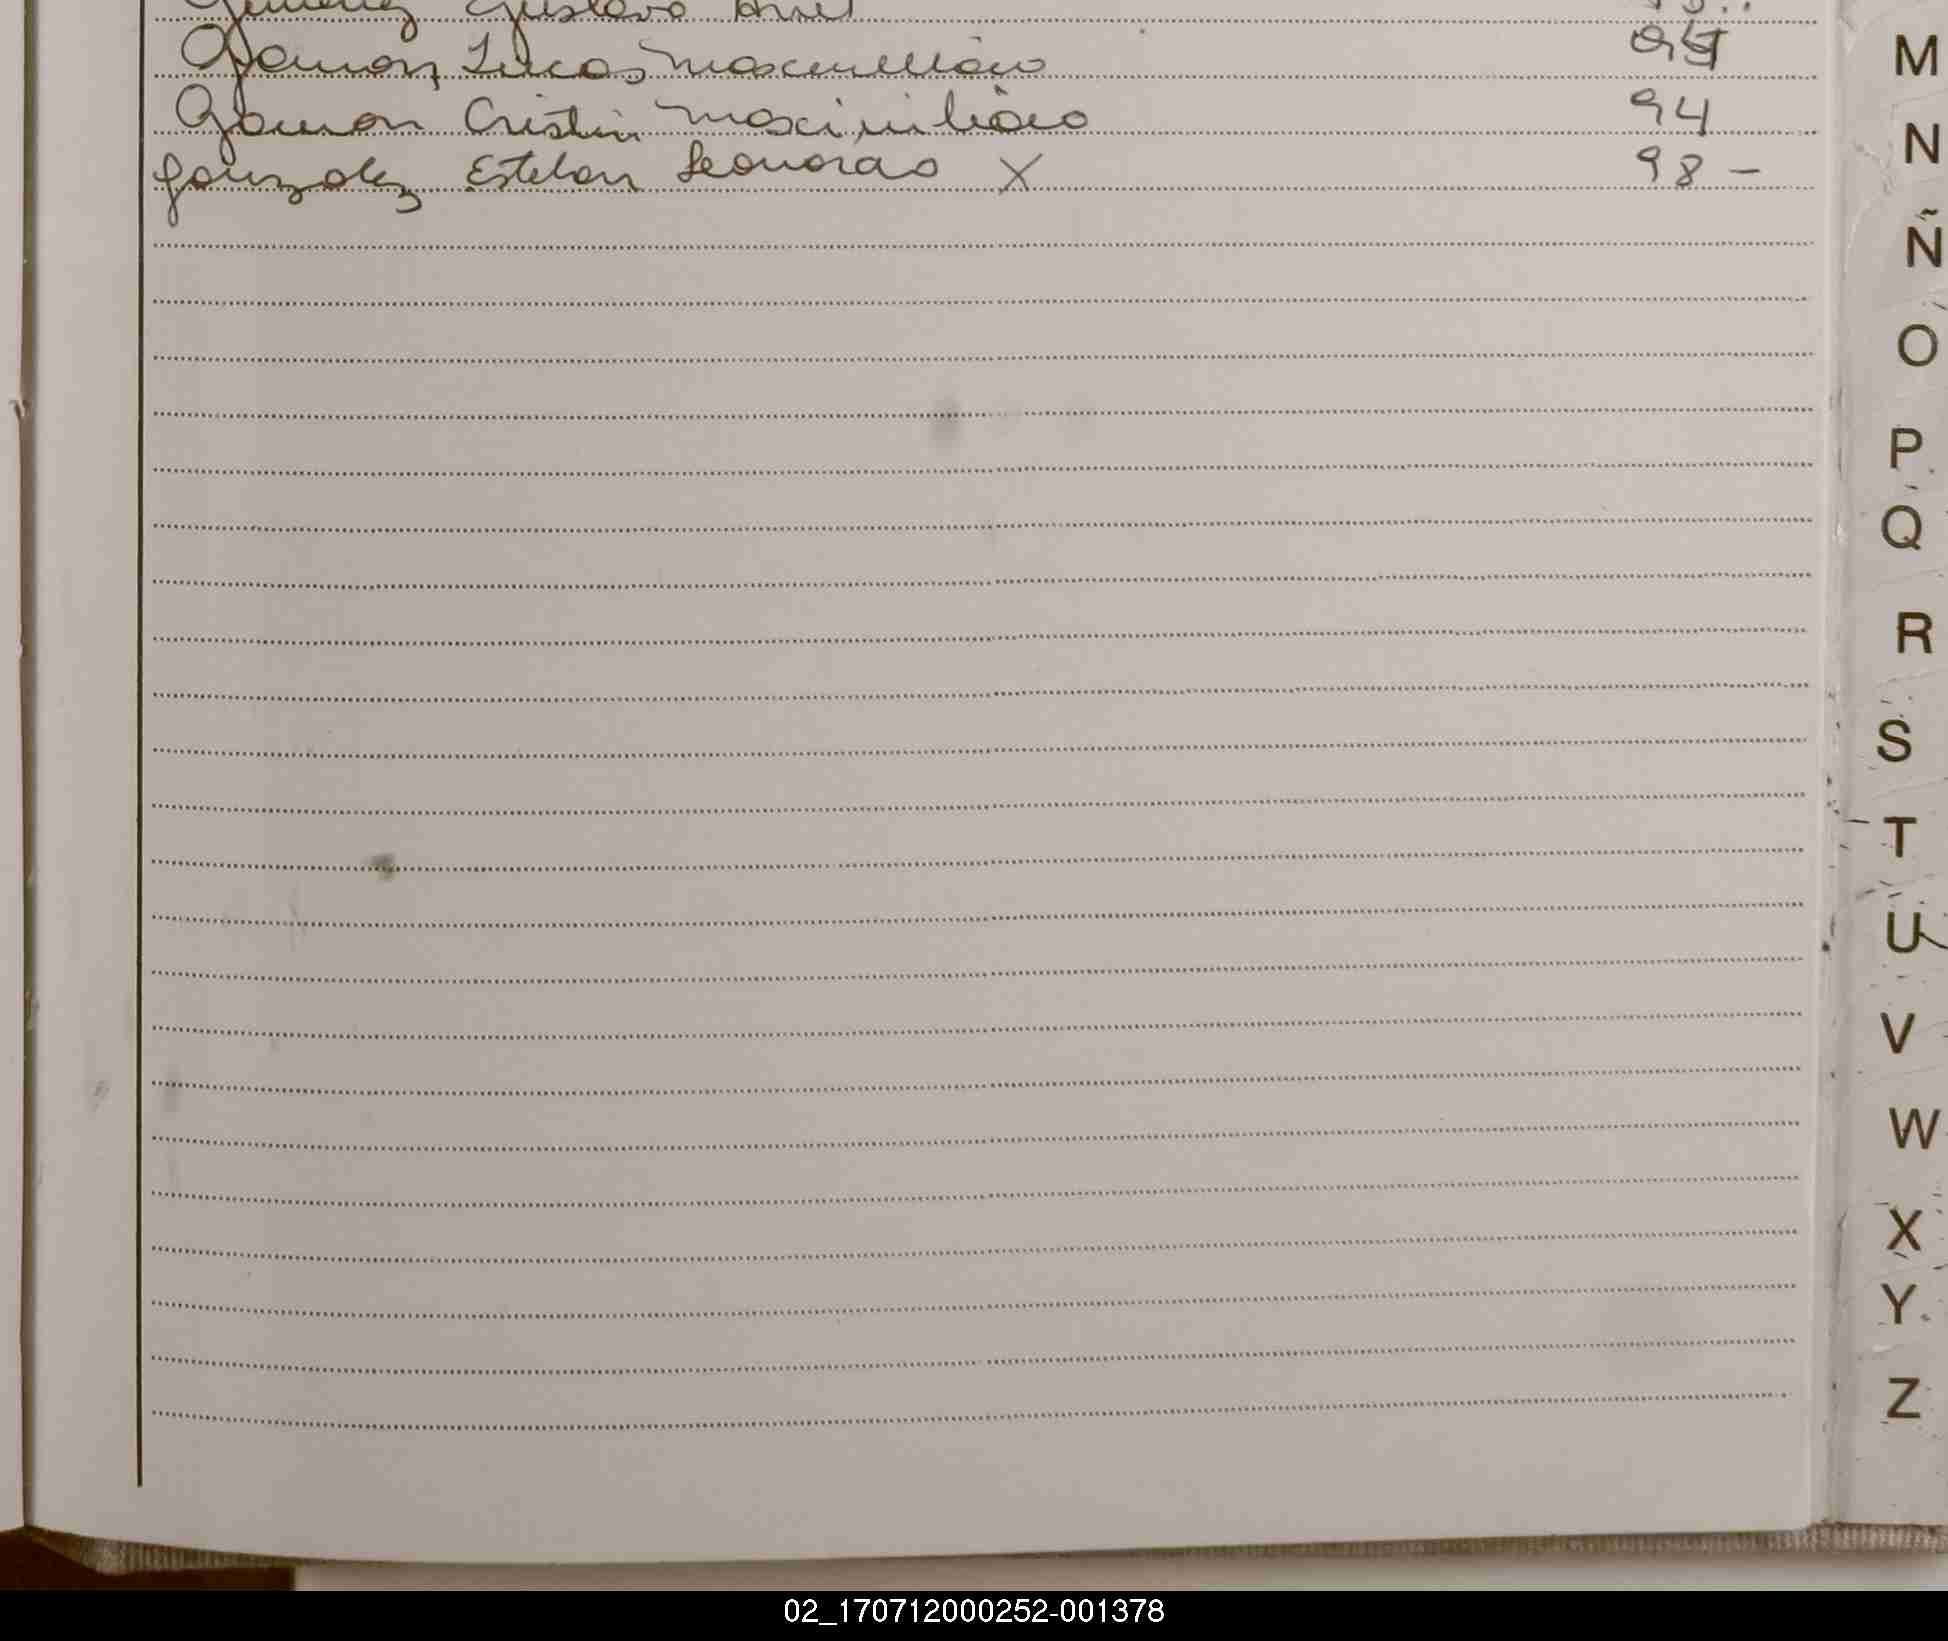 Gimenez Gustavo Ariel
Gamon, Lucas Maximiliano
Gamon Cristin Maximiliano 94
Gonzalez Esteban Leonardo X 98 -
M
N
Ñ
O
P
Q
R
S
T
U
V
W
X
Y
Z
02_170712000252-001378